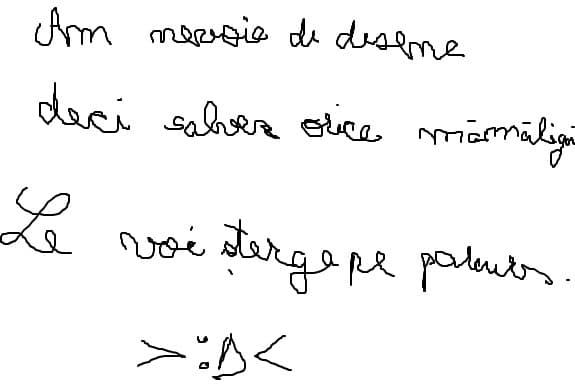 Am nevoie de deseme
deci salvez orice mămăligă
Le voi șterge pe
>:D<